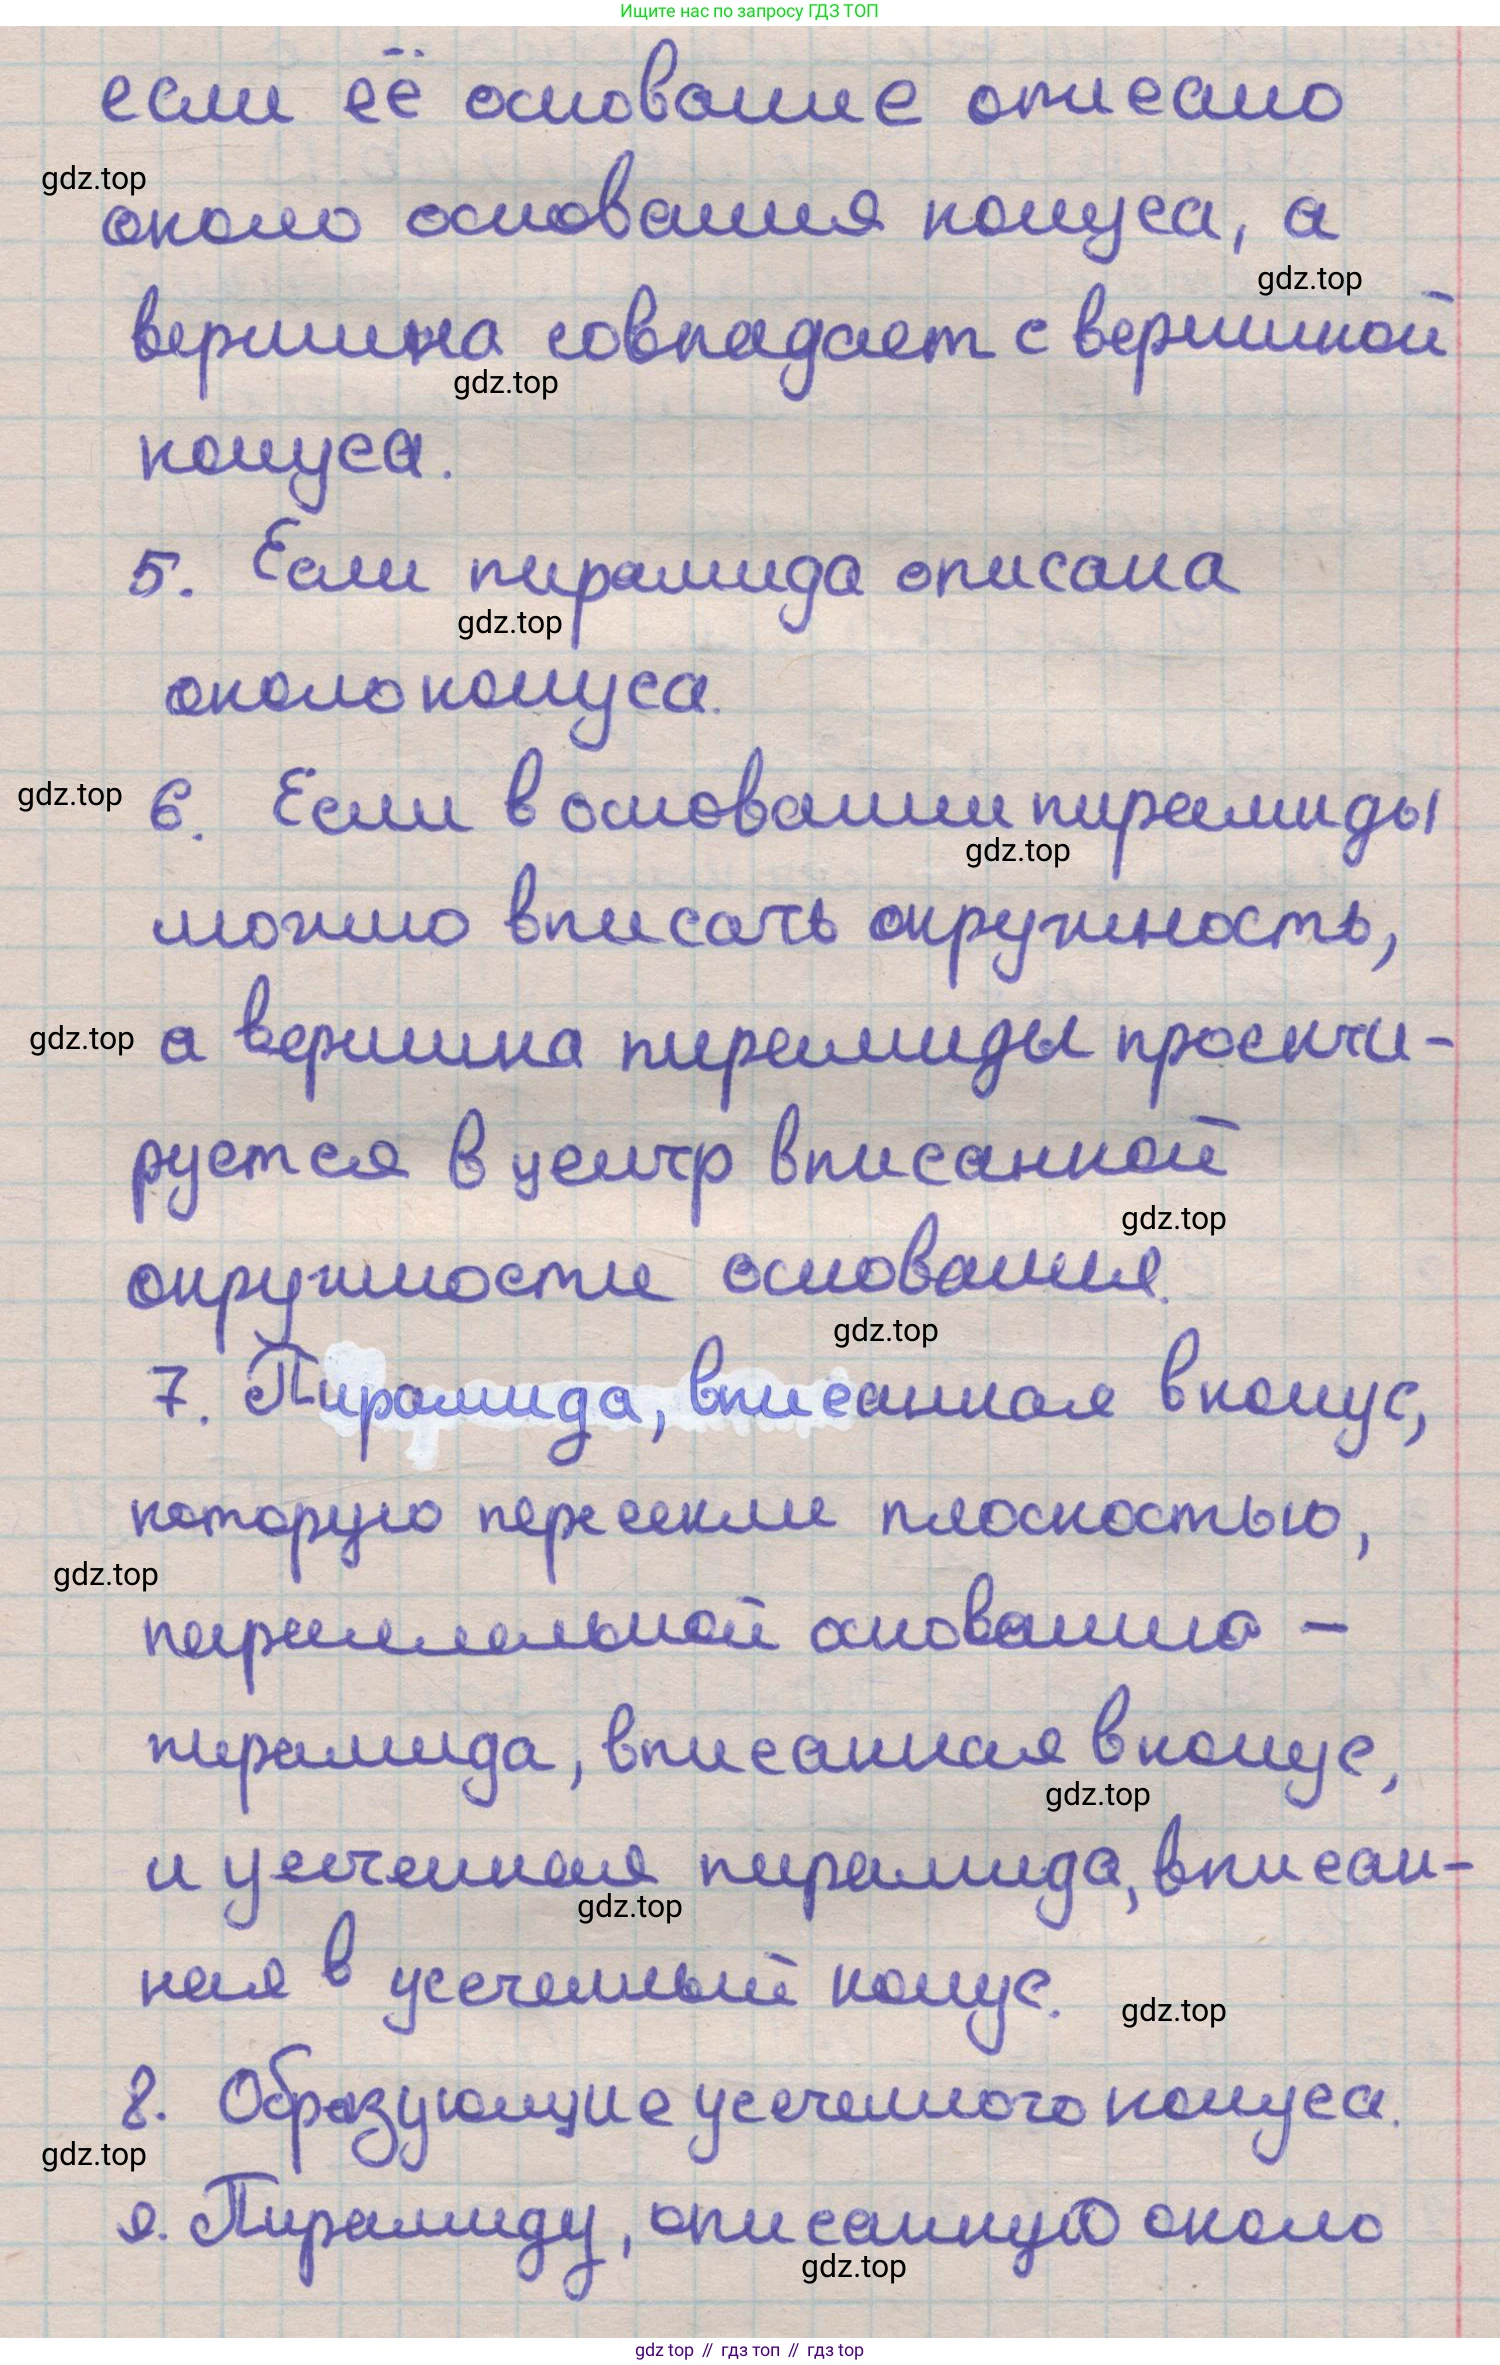 Ищите нас по запросу ГДЗ ТОП
если её основание описано
gdz.top
около основания конуса, а
gdz.top
вершина совпадает с вершиной
gdz.top
конуса.
5. Если пирамида описана
gdz.top
около конуса.
gdz.top
6. Если в основании пирамиды
gdz.top
можно вписать окружность,
gdz.top
а вершина пирамиды проекти-
руется в центр вписанной
gdz.top
окружности основания.
gdz.top
7. Пирамида, вписанная в конус,
которую пересекли плоскостью,
gdz.top
параллельной основанию –
пирамида, вписанная в конус,
gdz.top
и усеченная пирамида, вписан-
gdz.top
ная в усеченный конус.
gdz.top
8. Образующие усеченного конуса.
gdz.top
9. Пирамиду, описанную около
gdz.top
gdz top // гдз топ // гдз top